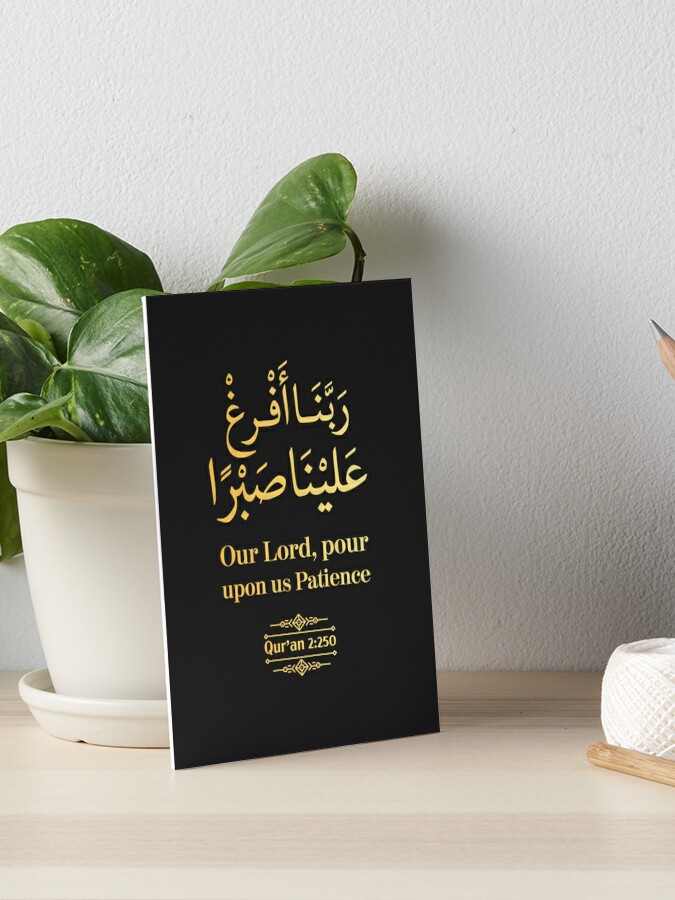 رَبَّنَا أَفْرِغْ
عَلَيْنَا صَبْرًا
Our Lord, pour
upon us Patience
Qur'an 2:250